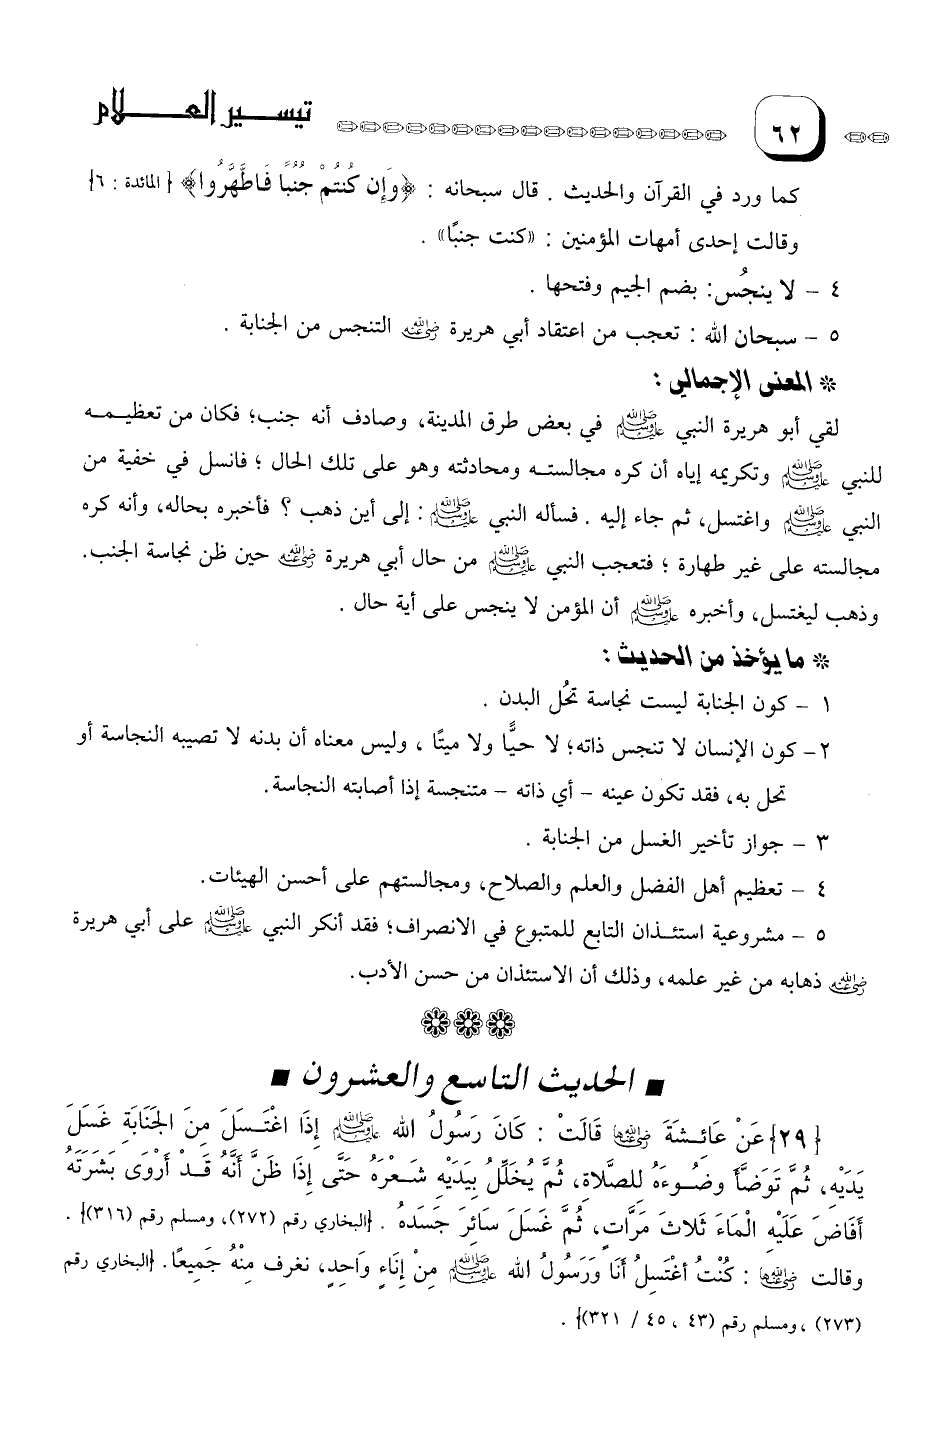 ٦٢ تيسير العلام
كما ورد في القرآن والحديث . قال سبحانه : ﴿وَإِن كُنتُمْ جُنُبًا فَاطَّهَّرُوا﴾ [ المائدة : ٦]
وقالت إحدى أمهات المؤمنين : «كنت جنبًا» .
٤ – لا ينجُس: بضم الجيم وفتحها .
٥ – سبحان الله : تعجب من اعتقاد أبي هريرة رضي الله عنه التنجس من الجنابة .
* المعنى الإجمالي :
لقي أبو هريرة النبي ﷺ في بعض طرق المدينة، وصادف أنه جنب؛ فكان من تعظيمه
للنبي ﷺ وتكريمه إياه أن كره مجالسته ومحادثته وهو على تلك الحال ؛ فانسل في خفية من
النبي ﷺ واغتسل، ثم جاء إليه . فسأله النبي ﷺ : إلى أين ذهب ؟ فأخبره بحاله، وأنه كره
مجالسته على غير طهارة ؛ فتعجب النبي ﷺ من حال أبي هريرة رضي الله عنه حين ظن نجاسة الجنب.
وذهب ليغتسل، وأخبره ﷺ أن المؤمن لا ينجس على أية حال .
* ما يؤخذ من الحديث :
١ – كون الجنابة ليست نجاسة تحُل البدن .
٢– كون الإنسان لا تنجس ذاته؛ لا حيًّا ولا ميتًا ، وليس معناه أن بدنه لا تصيبه النجاسة أو
تحل به، فقد تكون عينه – أي ذاته – متنجسة إذا أصابته النجاسة.
٣ – جواز تأخير الغسل من الجنابة .
٤ – تعظيم أهل الفضل والعلم والصلاح، ومجالستهم على أحسن الهيئات.
٥ – مشروعية استئذان التابع للمتبوع في الانصراف؛ فقد أنكر النبي ﷺ على أبي هريرة
رضي الله عنه ذهابه من غير علمه، وذلك أن الاستئذان من حسن الأدب.
■ الحديث التاسع والعشرون ■
{٢٩}عَنْ عَائِشَةَ رضي الله عنها قَالَتْ : كَانَ رَسُولُ الله ﷺ إِذَا اغْتَسَلَ مِنَ الجَنَابَةِ غَسَلَ
يَدَيْهِ، ثُمَّ تَوَضَّأَ وضُوءَهُ للصَّلاةِ، ثُمَّ يُخَلِّلُ بِيَدَيْهِ شَعْرَهُ حَتَّى إِذَا ظَنَّ أَنَّهُ قَدْ أَرْوَى بَشَرَتَهُ
أَفَاضَ عَلَيْهِ الْمَاءَ ثَلاثَ مَرَّاتٍ، ثُمَّ غَسَلَ سَائِرَ جَسَدَهُ . {البخاري رقم (٢٧٢)، ومسلم رقم (٣١٦)} .
وقالت رضي الله عنها : كُنْتُ أغْتَسِلُ أَنَا وَرَسُولُ الله ﷺ مِنْ إنَاءٍ وَاحِدٍ، نغرف مِنْهُ جَمِيعًا. {البخاري رقم
(٢٧٣) ،ومسلم رقم (٤٣ ، ٤٥ / ٣٢١)} .